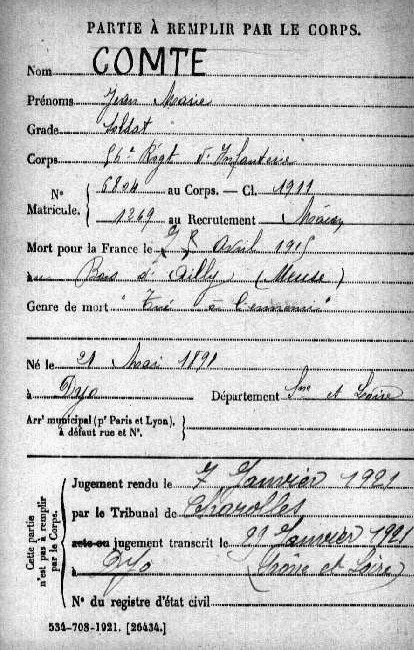 PARTIE À REMPLIR PAR LE CORPS.
Nom COMTE
Prénoms Jean Marie
Grade Soldat
Corps 56e Régt d'Infanterie
N° Matricule. { 6804 au Corps. — Cl. 1911
1269 au Recrutement Mâcon
Mort pour la France le 7 8 Avril 1915
au Bois d'Ailly (Meuse)
Genre de mort "Tué à l'ennemi"
Né le 21 Mai 1891
à Dyo Département Sne et Loire
Arrt municipal (pr Paris et Lyon), à défaut rue et N°. }
Cette partie n'est pas à remplir par le Corps.
Jugement rendu le 7 Janvier 1921
par le Tribunal de Charolles
acte ou jugement transcrit le 22 Janvier 1921
à Dyo (Saône et Loire)
N° du registre d'état civil
534-708-1921. [26434.]